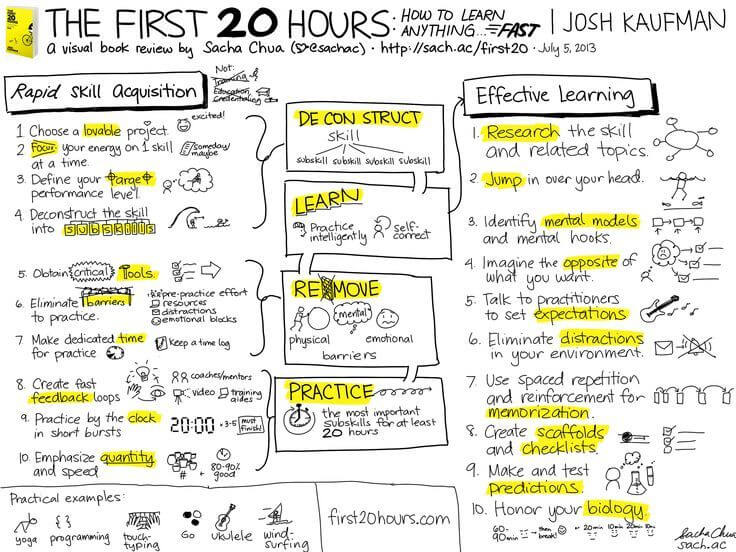 THE FIRST 20 HOURS: HOW TO LEARN ANYTHING... FAST | JOSH KAUFMAN
a visual book review by Sacha Chua (@sachac) · http://sach.ac/first20 · July 5, 2013
Rapid Skill Acquisition
Not:
Training
Education
Credentialing
1 Choose a lovable project.
excited!
2 Focus your energy on 1 skill
at a time.
someday/
maybe
3. Define your target
performance level.
4. Deconstruct the skill
into subskills
5. Obtain critical Tools.
6. Eliminate barriers
to practice.
pre-practice effort
resources
distractions
emotional blocks
7. Make dedicated time
for practice
Keep a time log
8. Create fast
feedback loops
coaches/mentors
video
training
aides
9. Practice by the clock
in short bursts
20:00 × 3-5 must
finish!
10. Emphasize quantity
and speed
#
+
80-90%
good
DECONSTRUCT
skill
subskill subskill subskill subskill
LEARN
Practice
intelligently
self-
correct
REMOVE
physical
mental
emotional
barriers
PRACTICE
the most important
subskills for at least
20 hours
Effective Learning
1. Research the skill
and related topics.
2. Jump in over your head.
3. Identify mental models
and mental hooks.
4. Imagine the opposite of
what you want.
5. Talk to practitioners
to set expectations
6. Eliminate distractions
in your environment.
7. Use spaced repetition
and reinforcement for
memorization.
8. Create scaffolds
and checklists.
9. Make and test
predictions.
10. Honor your biology.
60-
90 min
then
break!
or 20min 10min 20min 10m
Practical examples:
yoga
{ }
programming
touch-
typing
Go
ukulele
wind-
surfing
first20hours.com
Sacha Chua
sach.ac